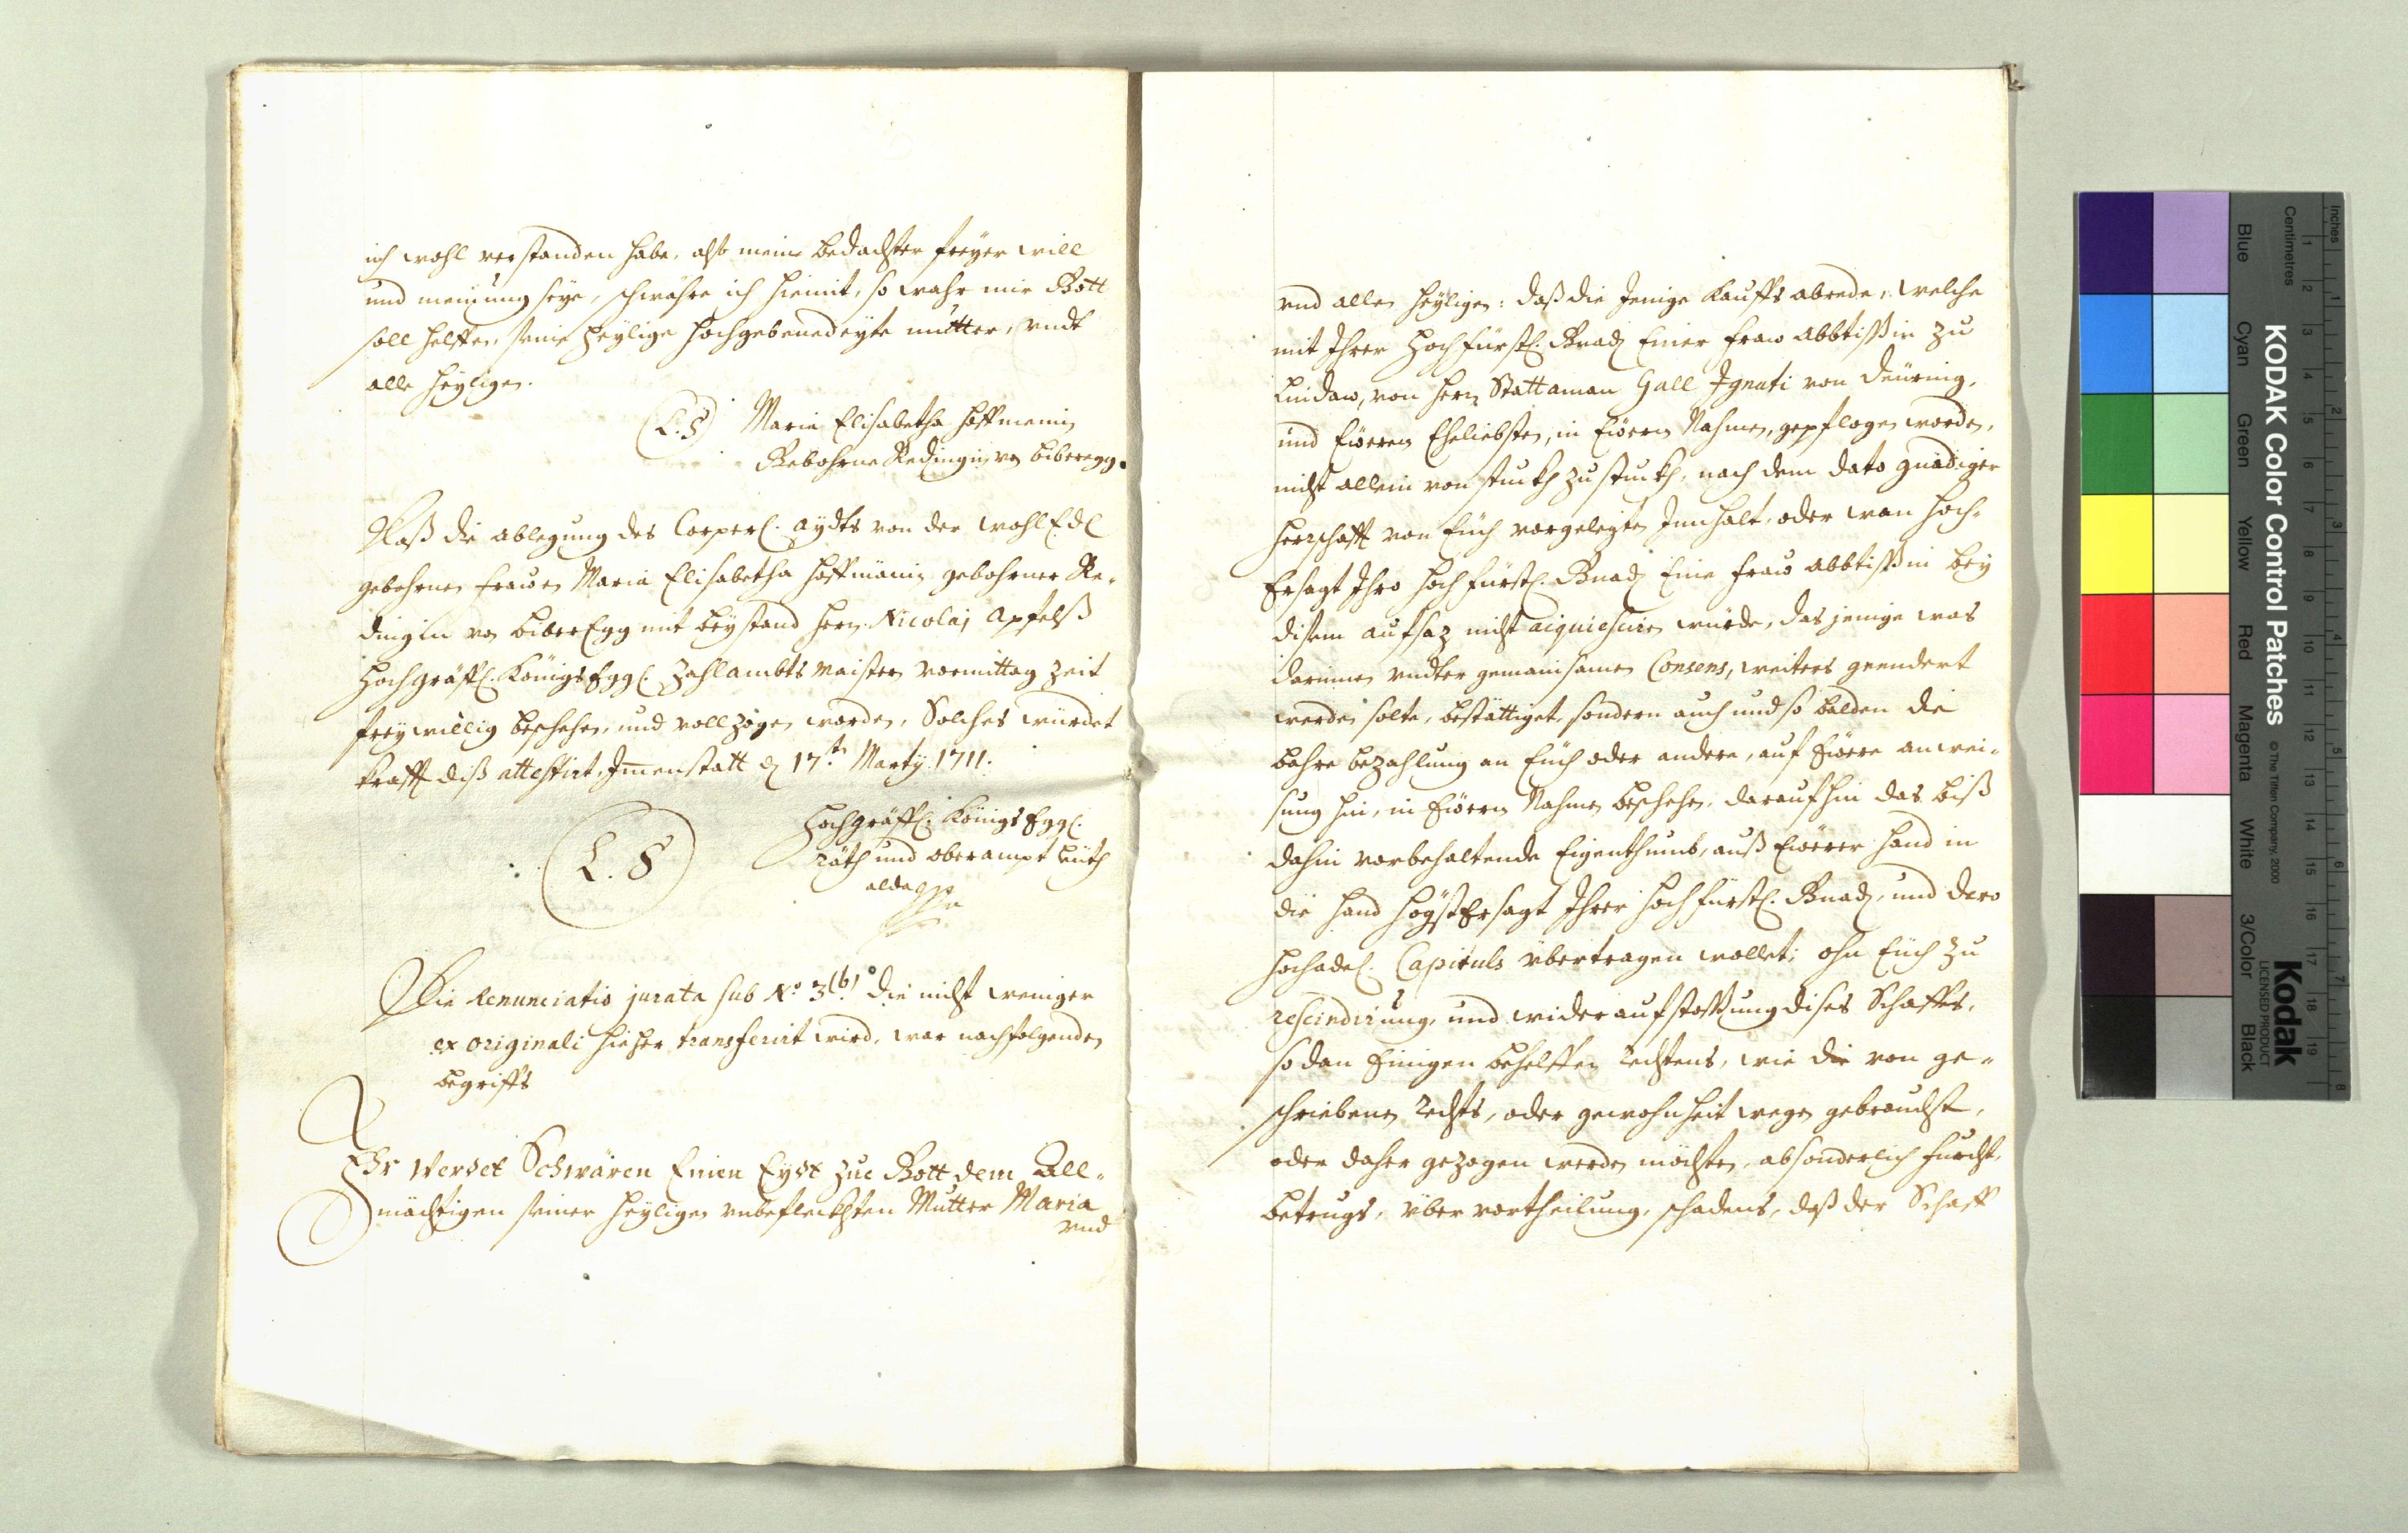 ich wohl verstanden habe, alß mein bedachter freyer will
und meinung seye, schwöhre ich hiemit, so wahr mir Gott
soll helffen, seine heylige hochgebenedeyte mutter, undt
alle heyligen.
(L.S) Maria Elisabetha Hoffmenin
Gebohrne Redingin von Biberegg.
Daß die ablegung des Corperl. aydts von der wohl Edl
gebohrnen frawen Maria Elisabetha Hoffmänin gebohrner Re-
dingin von BiberEgg mit beystand Herrn Nicolaj Apfelß
Hochgräffl. KönigsEggl. Zahlambts maistern vormittag Zeit
freywillig beschehen, und vollzogen worden, Solches würdet
krafft diß attestirt, Imenstatt den 17ten Martÿ 1711.
L. S
Hochgräffl. KönigsEggl.
räth und oberampt leüth
alda
Die Renunciatio jurata sub No. 3(b) die nicht weniger
ex originali hieher transferirt wird, war nachfolgenden
begriffs
Ihr werdet Schwären Einen Eydt zue Gott dem All-
mächtigen seiner heyligen unbeflecksten Mutter Maria
und
und allen heyligen: daß die Jenige kauffs abrede, welche
mit Ihrer Hochfürstl. Gnad. Einer fraw Abbtißin zu
Lindaw, von Herrn Stattaman Gall Ignati von Deüring,
und Ewerem Eheliebsten, in Ewerm Nahmen, gepflogen worden,
nicht allein von stuckh zu stuckh, nach dem dato gnädiger
Herrschafft von Euch vorgelegten Innhalt, oder wan Hoch-
Ersagt Ihro Hochfürstl. Gnad. Eine fraw Abbtißin bey
disem aufsaz nicht aiquiesciren würde, das jenige was
darinnen undter gemainsamen Consens, weiters geendert
werden solte, bestättiget, sondern auch und so balden die
bahre bezahlung an Euch oder andere, auf Ewere anwei-
sung hin, in Ewerm Nahmen beschehen, daraufhin das biß
dahin vorbehaltende Eigenthumb, auß Ewerer hand in
die hand högstErsagt Ihrer Hochfürstl. Gnad. und dero
Hochadel. Capituls übertragen wollet; ohn Euch zu
rescindirung, und wideraufstossung dises Schaffes,
so dan Einigen behelffen rechtens, wie die von ge-
schriebenen rechts, oder gewohnheit wegen gebraucht,
oder daher gezogen werden möchten, absonderlich furcht,
betrugs, übervortheilung, schadens, daß der Schaff
KODAK Color Control Patches
©The Tiffen Company, 2000
Kodak
LICENSED PRODUCT
Inches
Centimetres
Blue
Cyan
Green
Yellow
Red
Magenta
White
3/Color
Black